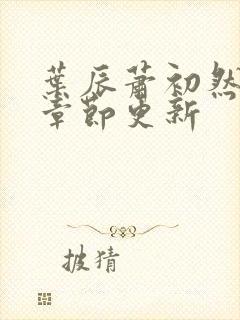 葉辰蕭初然
章節更新
披猜